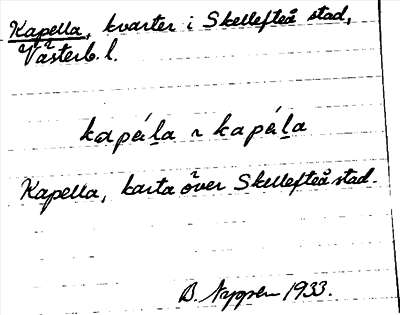 Kapella, kvarter i Skellefteå stad,
Västerb. l.
kapéḻa ~ kapáḻa
Kapella, karta över Skellefteå stad.
B. 1933.